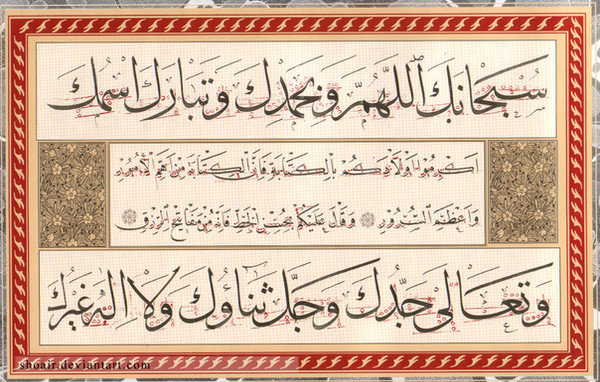 سبحانك اللهم وبحمدك وتبارك اسمك
اكرموا اولادكم بالكتابة فان الكتابة من اهم الأمور
واعظم السرور وقل عليكم بحسن الخط فانه من مفاتيح الرزق
وتعالى جدك وجل ثناؤك ولا اله غيرك
shoair.deviantart.com